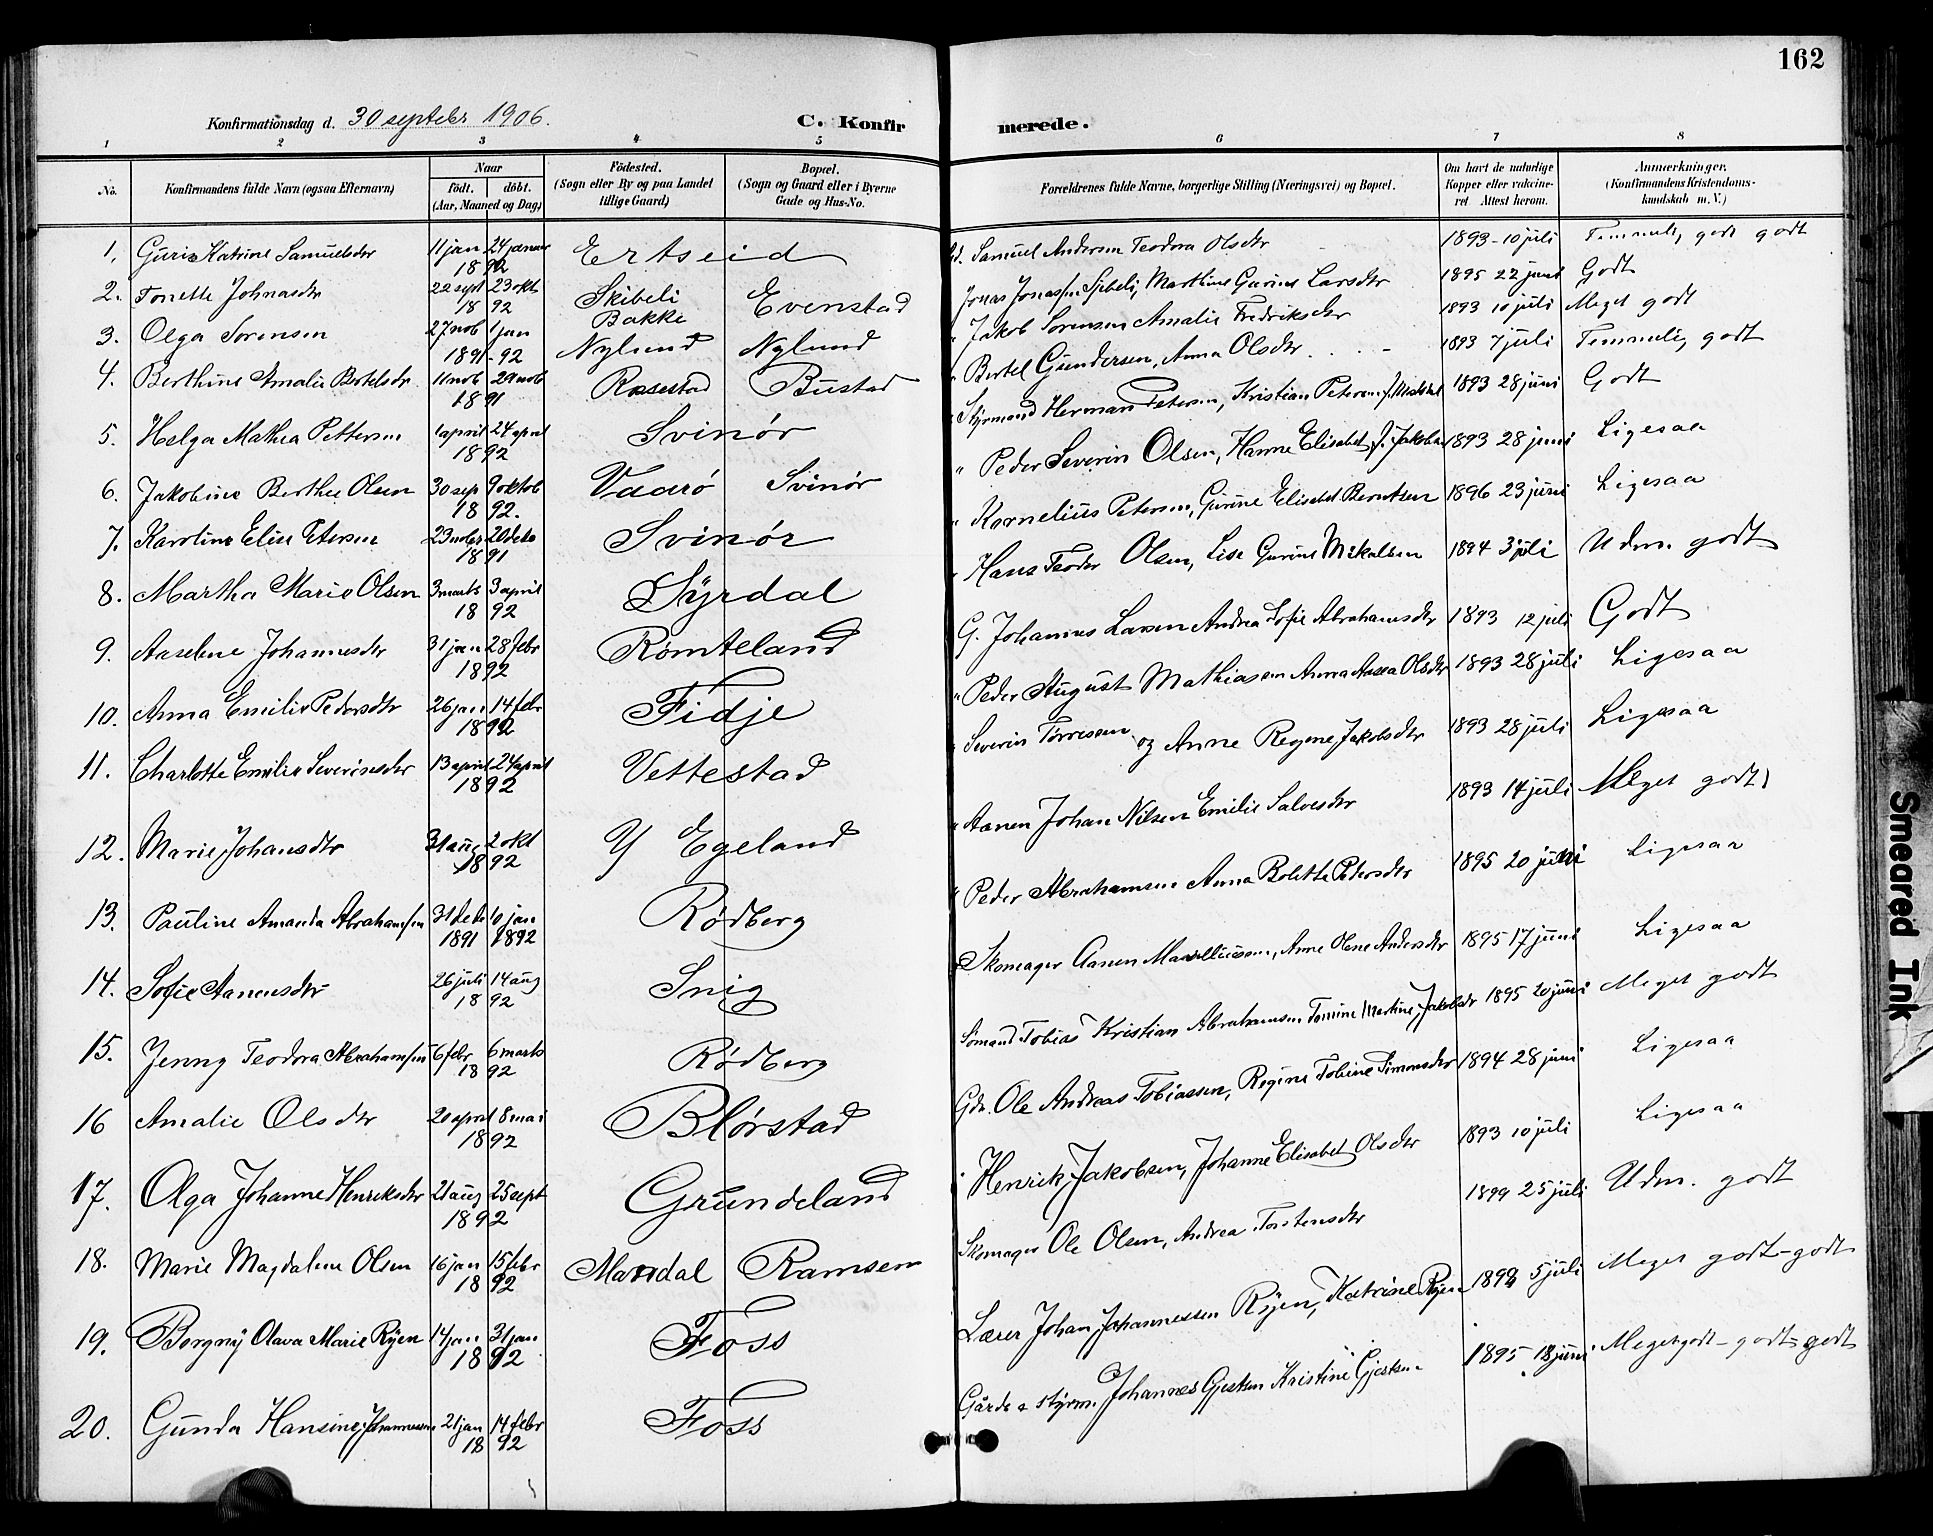 162
Konfirmationsdag d. 30 septebr 1906. C. Konfir merede.
1 2 3 4 5 6 7 8
No. Konfirmandens fulde Navn (ogsaa Efternavn) Naar födt. döbt. (Aar, Maaned og Dag) Födested. (Sogn eller By og paa Landet tillige Gaard) Bopæl. (Sogn og Gaard eller i Byerne Gade og Hus-No. Forældrenes fulde Navne, borgerlige Stilling (Næringsvei) og Bopæl. Om havt de naturlige Kopper eller vaccineret Attest herom. Anmerkninger. (Konfirmandens Kristendomskundskab m.V.)
1. Katrine Samuelsdtr 11 jan 24 januar 1892 Ertseid Samuel Andersen Teodora Olsdtr 1893 - 10 juli Temmeli godt godt
2. Tonette Johnasdtr 22 sept 23 okt 1892 Skibeli Evenstad Jonas Marthine Gurine Larsdtr 1895 22 juni Godt
3. Olga Sorensen 27 nob 1 jan 1891-92 Bakke Nylund Nylund Jakob Sorensen Amalie Fredriksdtr 1893 10 juli Meget godt
4. Berthine Amalie Bertelsdr 11 nob 29 nob 1891 Rosestad Bustad Bertel Gundersen, Anna Olsdtr 1893 7 juli Temmeli godt
5. Helga Mathea Pettersen 1 april 24 april 1892 Svinör Styrmand Herman Petersen, Kristian Petersen 1893 28 juni Godt
6. Jakobine Berthe Olsen 30 sep 9 oktob 1892. Vaarö Svinör " Peder Severin Olsen, Hanne Elisabet f. 1893 28 juni Ligesaa
7. Karoline Eline Petersen 23 nober 20 debr 1891 Svinör " Kornelius Petersen, Gurine Elisabet Berntsen 1896 23 juni Ligesaa
8. Martha Marie Olsen 3 marts 3 april 1892 Syrdal " Hans Teodor Olsen, Lise Gurine Mikalsen 1894 3 juli Udm. godt
9. Aaselene Johannesdtr 31 jan 28 febr 1892 Römteland G. Johannes Larsen Andrea Sofie Abrahamsdtr 1893 12 juli Godt
10. Anna Emilie Pedersdtr 26 jan 14 febr 1892 Fidje " Peder August Mathiasen Anna Aasea Olsdtr 1893 28 juli Ligesaa
11. Charlotte Emilie Severinsdtr 13 april 24 april 1892 Vettestad Severin Torresen og Anne Regine Jakobsdtr 1893 28 juli Ligesaa
12. Marie Johansdtr 31 aug 2 okt 1892 Y Egeland " Aanen Johan Nilsen Emilie Salvesdtr 1893 14 juli Meget godt
13. Pauline Amanda Abrahamsen 31 debr 10 jan 1891 1892 Rödberg " Peder Abrahamsen Anna Bolette Petersdtr 1895 20 juni Ligesaa
14. Sofie Aanensdtr 26 juli 14 aug 1892 Snig Skomager Aanen Anne Olene Andersdtr 1895 17 juni Ligesaa
15. Jenny Teodora Abrahamsen 6 febr 6 marts 1892 Rödberg Sömand Tobias Kristian Abrahamsen Tomine Martine Jakobsdtr 1895 20 juni Meget godt
16 Amalie Olsdtr 20 april 8 mai 1892 Blörstad Gdr. Ole Andreas Tobiassen, Regine Tobine Simonsdtr 1894 28 juni Ligesaa
17. Olga Johanne Henriksdtr 21 aug 25 sept 1892 Grundeland Henrik Jakobsen, Johanne Elisabet Olsdtr 1893 10 juli Ligesaa
18. Marie Magdalene Olsen 16 jan 15 febr 1892 Mandal Ramsem Skomager Ole Olsen, Andrea Torstensdtr 1899 25 juli Udm. godt
19. Borgny Olava Marie Ryen 14 jan 31 jan 1892 Foss Lærer Johan Johannessen Ryen, Katrine Ryen 1899 5 juli Meget godt-godt
20. Gunda Hansine Johannessen 21 jan 14 febr 1892 Foss Gårdr & styrm. Johannes Gjestsen Kristine Gjestsen 1895 18 juni Meget godt - godt-godt
Smeared Ink